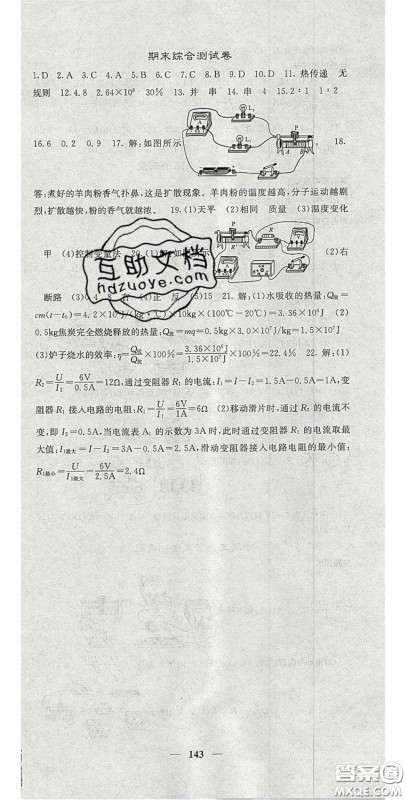 期末综合测试卷
1.D 2.A 3.C 4.A 5.C 6.A 7.C 8.B 9.D 10.D 11.热传递 无
规则 12.4.8 2.64×10⁶ 30% 13.并 串 14.串 4 15.2∶1 1∶2
16.6 0.2 0.9 17.解:如图所示 18.
答:煮好的羊肉粉香气扑鼻,这是扩散现象。羊肉粉的温度越高,分子运动越剧
烈,扩散越快,粉的香气就越浓。 19.(1)天平 (2)相同 质量 (3)温度变化
甲 (4)控制变量法 20.(1)解:如图所示 (2)右
断路 (3)0.4 8 (4)正 反 (5)15 21.解:(1)水吸收的热量:Q吸=
cm(t-t₀)=4.2×10³J/(kg·℃)×10kg×(100℃-20℃)=3.36×10⁶J (2)
0.5kg焦炭完全燃烧释放的热量:Q放=mq=0.5kg×3.0×10⁷J/kg=1.5×10⁷J
(3)炉子烧水的效率:η=Q吸/Q放×100%=3.36×10⁶J/1.5×10⁷J×100%=22.4% 22.解:(1)
R₂=U/I₂=6V/0.5A=12Ω,通过变阻器 R₁ 的电流:I₁=I-I₂=1.5A-0.5A=1A,变
阻器 R₁ 接入电路的电阻:R₁=U/I₁=6V/1A=6Ω (2)移动滑片时,通过 R₂ 的电流不
变,即 I₂=0.5A,当电流表 A₁ 的示数为 3A 时,此时通过变阻器 R₁ 的电流取最
大值:I₁最大=I-I₂=3A-0.5A=2.5A,滑动变阻器接入电路电阻的最小值:
R₁最小=U/I₁最大=6V/2.5A=2.4Ω
互助文档
hdzuoye.com
143
答案圈
MXQE.COM